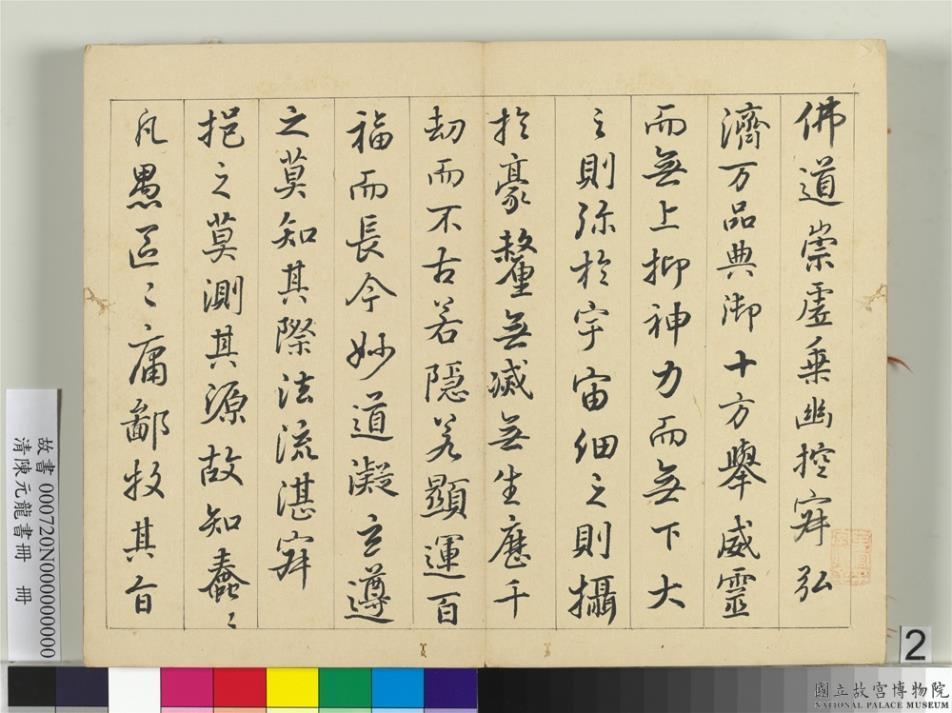 佛道崇虛乗幽控寂弘
濟万品典御十方舉威靈
而無上抑神力而無下大
之則弥於宇宙细之則攝
於豪釐無滅無生歷千
劫而不古若隱若顯運百
福而長今妙道凝玄遵
之莫知其際法流湛寂
挹之莫測其源故知蠢〻
凡愚區〻庸鄙投其旨
故書000720N000000000
清陳元龍書冊 冊
2
國立故宮博物院
NATIONAL PALACE MUSEUM